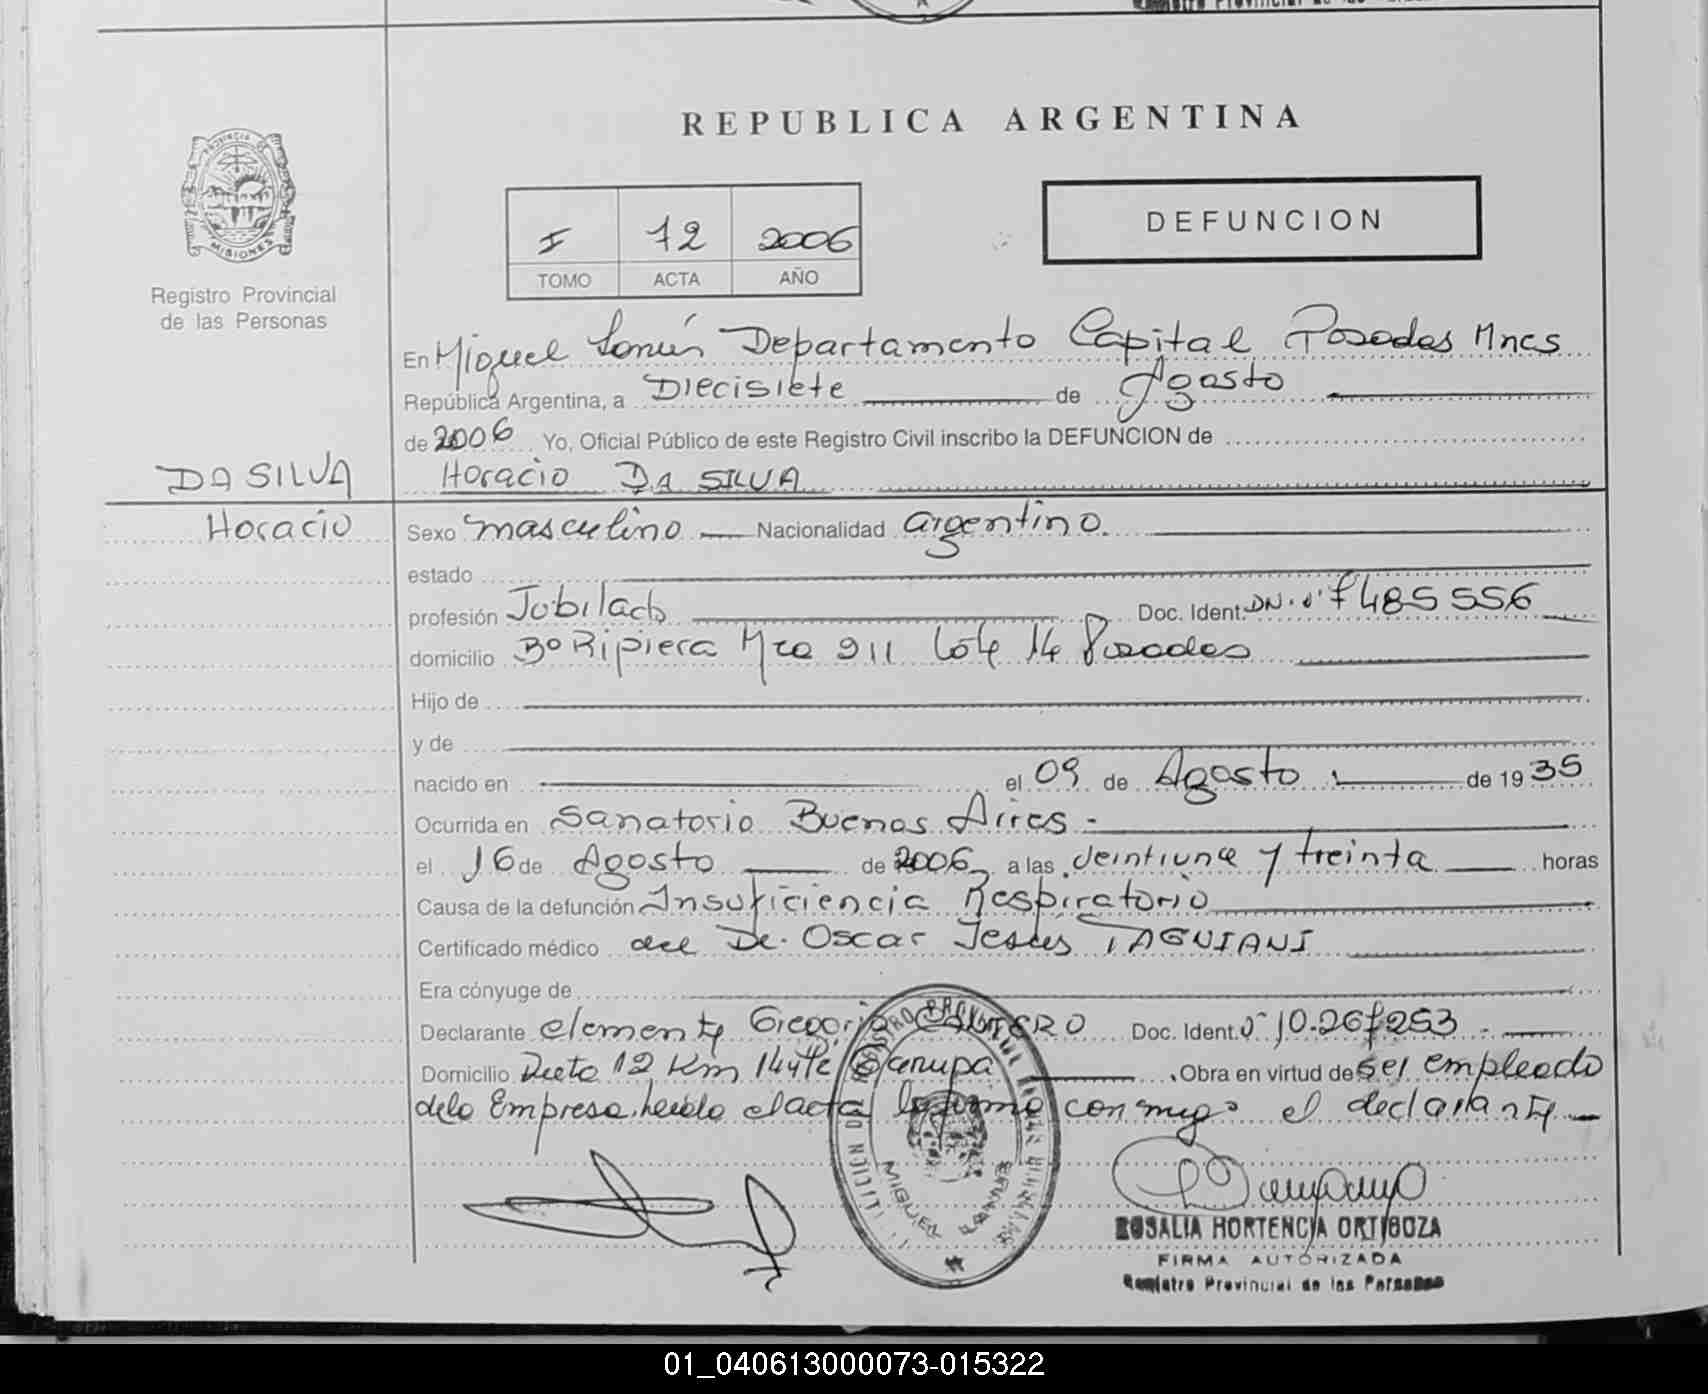 REPUBLICA ARGENTINA
PROVINCIA DE
MISIONES
Registro Provincial
de las Personas
I 12 2006
TOMO ACTA AÑO
DEFUNCION
En Miguel Lanús Departamento Capital Posadas Mnes
República Argentina, a Diecisiete de Agosto
de 2006 Yo, Oficial Público de este Registro Civil inscribo la DEFUNCION de
DA SILVA Horacio DA SILVA
Horacio Sexo masculino Nacionalidad argentino.
estado
profesión Jubilado Doc. Ident. DN. nº 7485556
domicilio Bº Ripiera Mza 911 Lote 14 Posadas
Hijo de
y de
nacido en el 09 de Agosto de 1935
Ocurrida en Sanatorio Buenos Aires.-
el 16 de Agosto de 2006, a las veintiuna y treinta horas
Causa de la defunción Insuficiencia Respiratorio
Certificado médico del Dr. Oscar Jesus TAGNIANI
Era cónyuge de
Declarante Clemente Gregorio Doc. Ident. nº 10.267253.-
Domicilio Ruta 12 Km Garupa. Obra en virtud de ser empleado
de la Empresa, leida el acta la firma conmigo el declarante
MIGUEL LANUS
ROSALIA HORTENCIA ORTIGOZA
FIRMA AUTORIZADA
Registro Provincial de las Personas
01_040613000073-015322